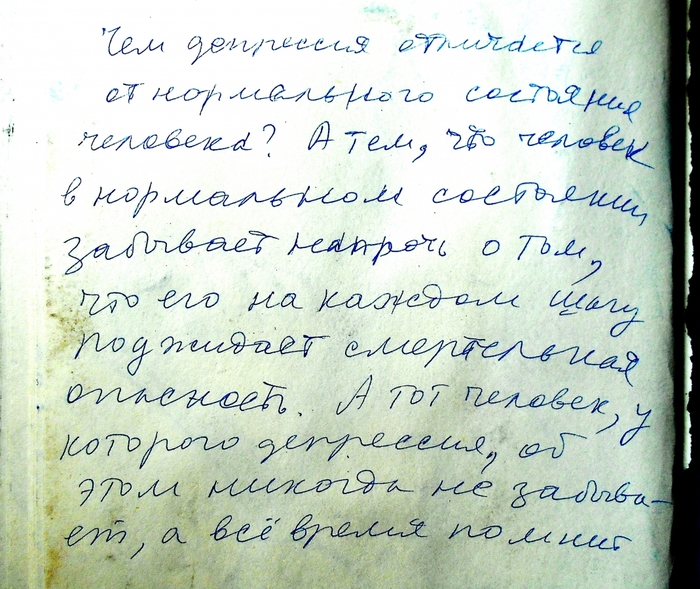 Чем депрессия отличается
от нормального состояния
человека? А тем, что человек
в нормальном состоянии
забывает напрочь о том,
что его на каждом шагу
поджидает смертельная
опасность. А тот человек, у
которого депрессия, об
этом никогда не забыва-
ет, а всё время помнит